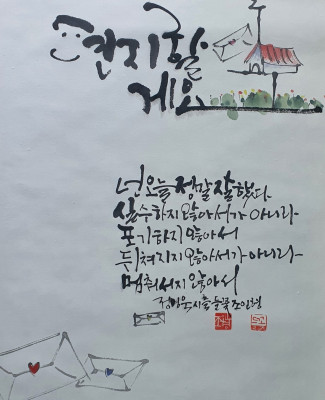 편지할
게요
넌 오늘 정말 잘했다
실수하지 않아서가 아니라
포기하지 않아서
뒤쳐지지 않아서가 아니라
멈춰서지 않아서